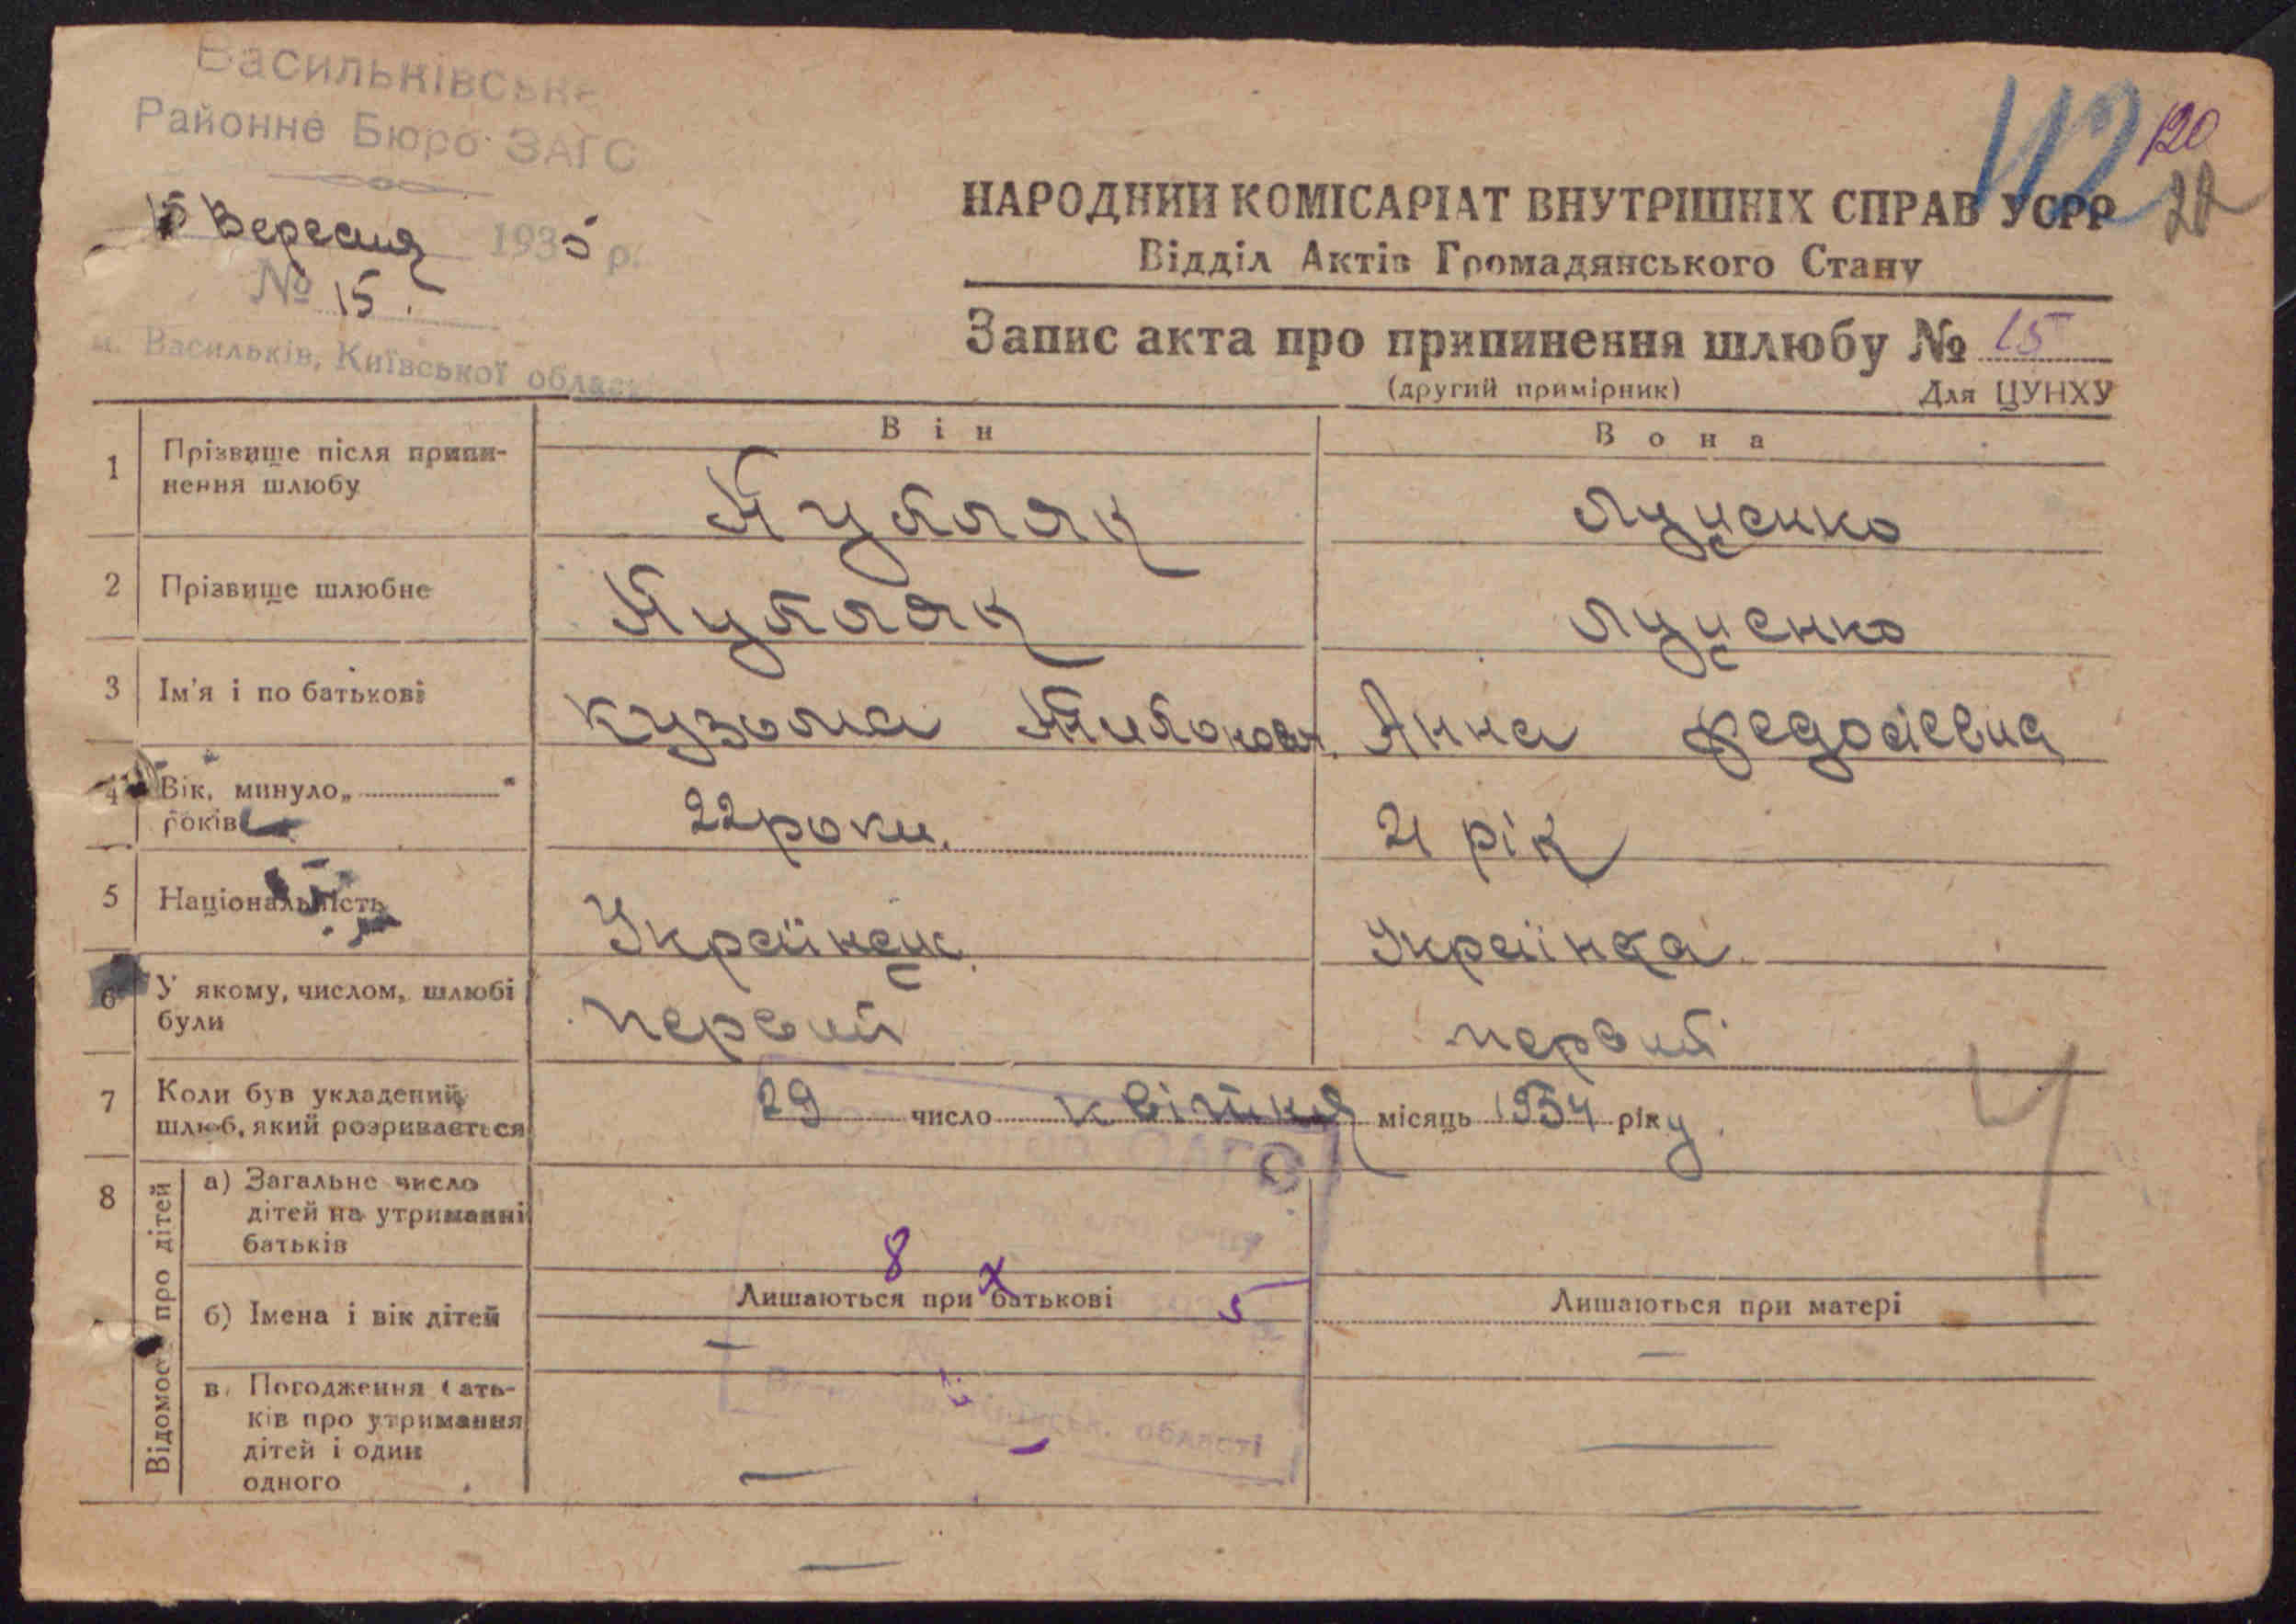 Васильківське
Районне Бюро ЗАГС
15 Вересня 1935 р.
№ 15.
м. Васильків, Київської області
112 120
22
НАРОДНИЙ КОМІСАРІАТ ВНУТРІШНІХ СПРАВ УСРР
Відділ Актів Громадянського Стану
Запис акта про припинення шлюбу № 15
(другий примірник) Для ЦУНХУ
Він Вона
1 Прізвище після припи-
нення шлюбу Луценко
2 Прізвище шлюбне Луценко
3 Ім'я і по батькові Кузьма Анна Федосієвна
4 Вік, минуло „ "
років 22 роки. 21 рік
5 Національність Українец. Українка
6 У якому, числом, шлюбі
були первий первий
7 Коли був укладений
шлюб, який розривається 29 число квітня місяць 1934 року.
8 Відомості про дітей
а) Загальне число
дітей на утриманні
батьків
8 х 5
б) Імена і вік дітей Лишаються при батькові Лишаються при матері
— —
в) Погодження бать-
ків про утримання
дітей і один
одного — —
області